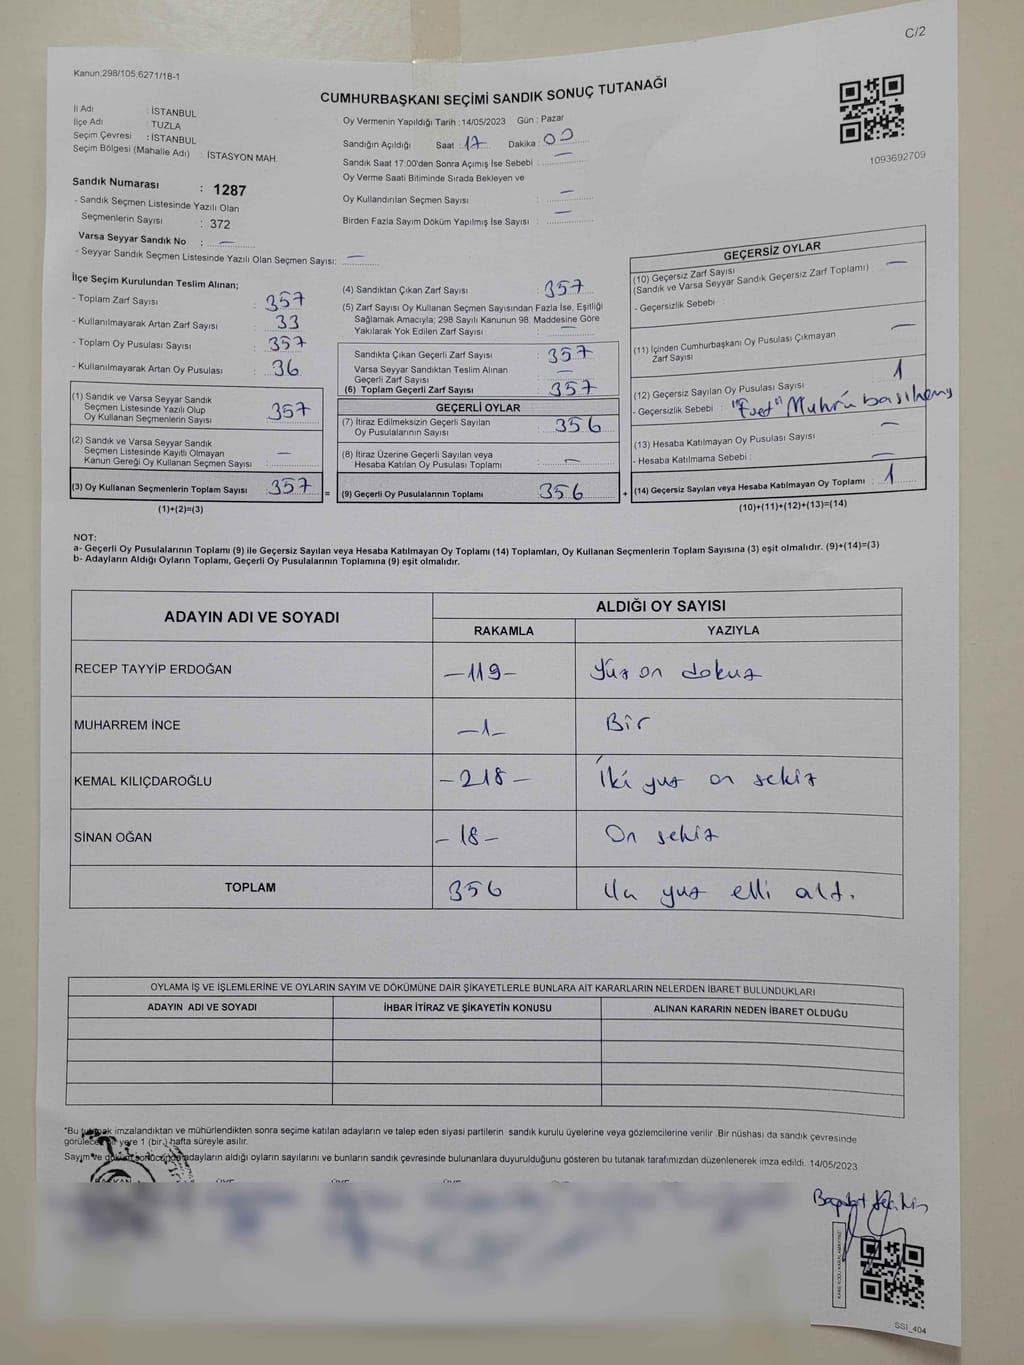 C/2
Kanun:298/105;6271/18-1
CUMHURBAŞKANI SEÇİMİ SANDIK SONUÇ TUTANAĞI
İl Adı : İSTANBUL
İlçe Adı : TUZLA
Seçim Çevresi : İSTANBUL
Seçim Bölgesi (Mahalle Adı) : İSTASYON MAH.
Oy Vermenin Yapıldığı Tarih : 14/05/2023 Gün : Pazar
Sandığın Açıldığı Saat : 17 Dakika : 00
Sandık Saat 17:00'den Sonra Açımış İse Sebebi : —
Oy Verme Saati Bitiminde Sırada Bekleyen ve
Oy Kullandırılan Seçmen Sayısı : —
Birden Fazla Sayım Döküm Yapılmış İse Sayısı : —
1093692709
Sandık Numarası : 1287
- Sandık Seçmen Listesinde Yazılı Olan
Seçmenlerin Sayısı : 372
Varsa Seyyar Sandık No : —
- Seyyar Sandık Seçmen Listesinde Yazılı Olan Seçmen Sayısı: —
İlçe Seçim Kurulundan Teslim Alınan;
- Toplam Zarf Sayısı : 357
- Kullanılmayarak Artan Zarf Sayısı : 33
- Toplam Oy Pusulası Sayısı : 357
- Kullanılmayarak Artan Oy Pusulası : 36
(1) Sandık ve Varsa Seyyar Sandık
Seçmen Listesinde Yazılı Olup
Oy Kullanan Seçmenlerin Sayısı : 357
(2) Sandık ve Varsa Seyyar Sandık
Seçmen Listesinde Kayıtlı Olmayan
Kanun Gereği Oy Kullanan Seçmen Sayısı : —
(3) Oy Kullanan Seçmenlerin Toplam Sayısı : 357
(1)+(2)=(3)
=
(4) Sandıktan Çıkan Zarf Sayısı : 357
(5) Zarf Sayısı Oy Kullanan Seçmen Sayısından Fazla İse, Eşitliği
Sağlamak Amacıyla; 298 Sayılı Kanunun 98. Maddesine Göre
Yakılarak Yok Edilen Zarf Sayısı : —
Sandıkta Çıkan Geçerli Zarf Sayısı : 357
Varsa Seyyar Sandıktan Teslim Alınan
Geçerli Zarf Sayısı : —
(6) Toplam Geçerli Zarf Sayısı : 357
GEÇERLİ OYLAR
(7) İtiraz Edilmeksizin Geçerli Sayılan
Oy Pusulalarının Sayısı : 356
(8) İtiraz Üzerine Geçerli Sayılan veya
Hesaba Katılan Oy Pusulası Toplamı : —
(9) Geçerli Oy Pusulalarının Toplamı : 356
+
GEÇERSİZ OYLAR
(10) Geçersiz Zarf Sayısı : —
(Sandık ve Varsa Seyyar Sandık Geçersiz Zarf Toplamı)
- Geçersizlik Sebebi :
(11) İçinden Cumhurbaşkanı Oy Pusulası Çıkmayan
Zarf Sayısı : —
(12) Geçersiz Sayılan Oy Pusulası Sayısı : 1
- Geçersizlik Sebebi : "Evet" Muhrü
(13) Hesaba Katılmayan Oy Pusulası Sayısı : —
- Hesaba Katılmama Sebebi : —
(14) Geçersiz Sayılan veya Hesaba Katılmayan Oy Toplamı : 1
(10)+(11)+(12)+(13)=(14)
NOT:
a- Geçerli Oy Pusulalarının Toplamı (9) ile Geçersiz Sayılan veya Hesaba Katılmayan Oy Toplamı (14) Toplamları, Oy Kullanan Seçmenlerin Toplam Sayısına (3) eşit olmalıdır. (9)+(14)=(3)
b- Adayların Aldığı Oyların Toplamı, Geçerli Oy Pusulalarının Toplamına (9) eşit olmalıdır.
ADAYIN ADI VE SOYADI
ALDIĞI OY SAYISI
RAKAMLA YAZIYLA
RECEP TAYYİP ERDOĞAN -119- Yüz on dokuz
MUHARREM İNCE -1- Bir
KEMAL KILIÇDAROĞLU -218- İki yuz on sekiz
SİNAN OĞAN -18- On sekiz
TOPLAM 356 yuz elli altı
OYLAMA İŞ VE İŞLEMLERİNE VE OYLARIN SAYIM VE DÖKÜMÜNE DAİR ŞİKAYETLERLE BUNLARA AİT KARARLARIN NELERDEN İBARET BULUNDUKLARI
ADAYIN ADI VE SOYADI İHBAR İTİRAZ VE ŞİKAYETİN KONUSU ALINAN KARARIN NEDEN İBARET OLDUĞU
*Bu tutanak imzalandıktan ve mühürlendikten sonra seçime katılan adayların ve talep eden siyasi partilerin sandık kurulu üyelerine veya gözlemcilerine verilir. Bir nüshası da sandık çevresinde
görülecek bir yere 1 (bir.) hafta süreyle asılır.
Sayım ve döküm sonucunda adayların aldığı oyların sayılarını ve bunların sandık çevresinde bulunanlara duyurulduğunu gösteren bu tutanak tarafımızdan düzenlenerek imza edildi. 14/05/2023
SSI_404